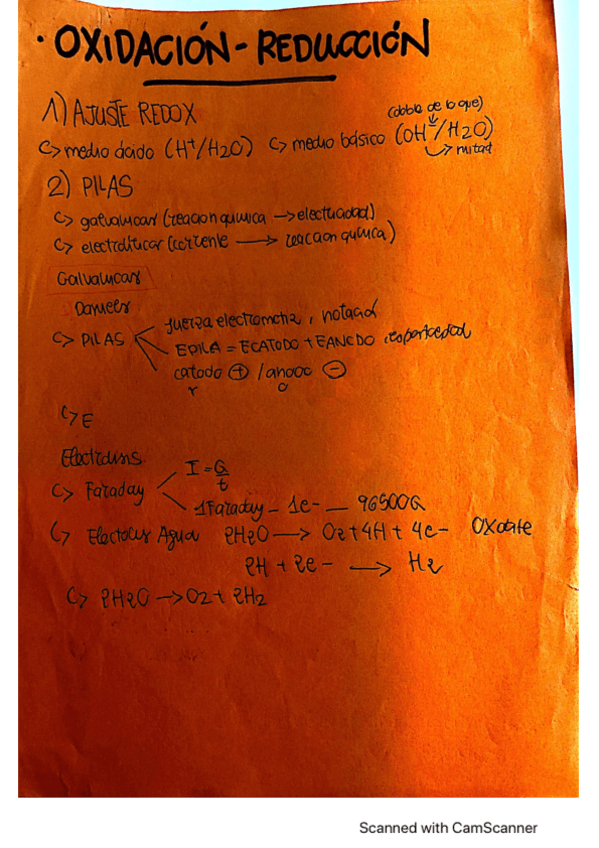 · OXIDACIÓN - REDUCCIÓN
1) AJUSTE REDOX
(doble de lo que)
↳ medio ácido (H+/H2O) ↳ medio básico (OH-/H2O)
↳ mitad
2) PILAS
↳ galvanicas (reacion quimica → electricidad)
↳ electroliticas (corriente → reaccion quimica)
Galvanicas
Daniels
↳ PILAS fuerza electromotriz, notación
EPILA = ECATODO + EANODO, espontaneidad
catodo + / anodo -
r o
↳ E
Electrolisis
↳ Faraday I = Q/t
1 Faraday - 1e- - 96500Q
↳ Electolisis Agua 2H2O → O2 + 4H + 4e- Oxdate
2H + 2e- → H2
↳ 2H2O → O2 + 2H2
Scanned with CamScanner